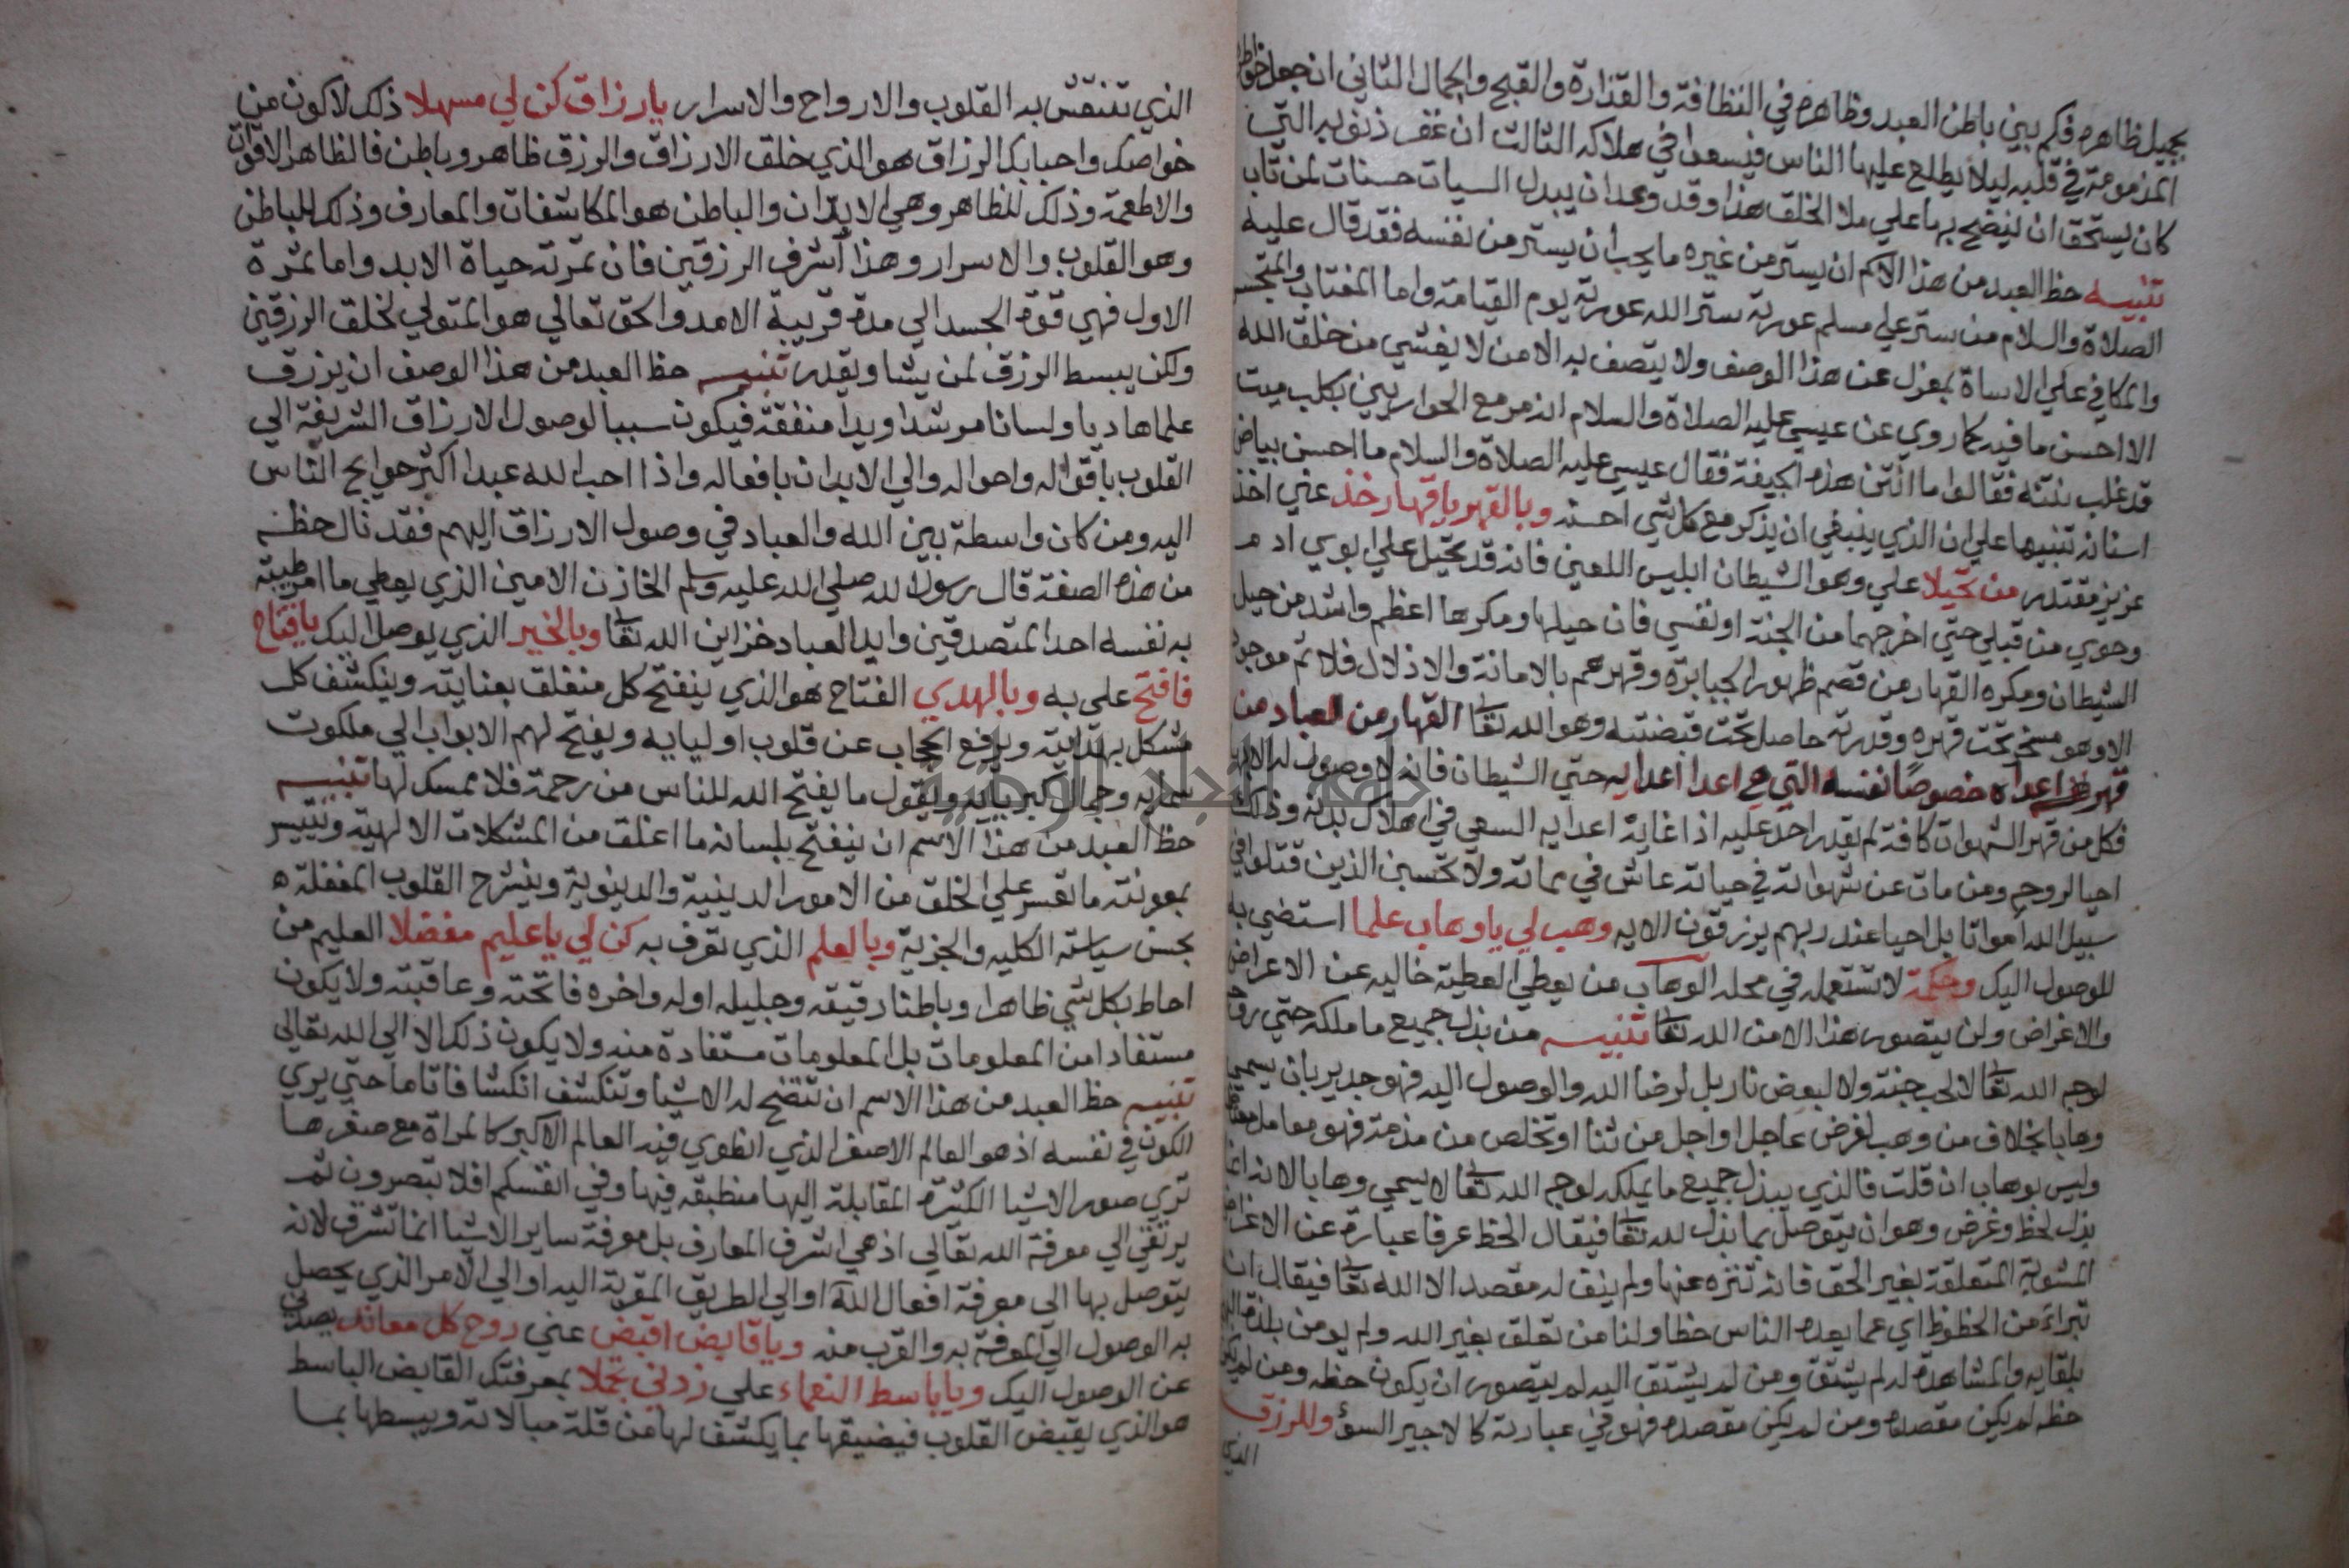 بجميل ظاهره فكم بين باطن العبد وظاهره في النظافة والقذارة والقبح والجمال الثاني ان جعل خواطره
المذمومة في قلبه ليلا يطلع عليها الناس فيسعوا في هلاكه الثالث ان غفر ذنوبه التي
كان يستحق ان يفتضح بها علي ملا الخلق هذا وقد وعد ان يبدل السيات حسنات لمن تاب
تنبيه حظ العبد من هذا الاسم ان يستر من غيره ما يحب ان يستر من نفسه فقد قال عليه
الصلاة والسلام من ستر علي مسلم عورته ستر الله عورته يوم القيامة واما المغتاب والمتجسس
والمكافي علي الاساة بمعزل عن هذا الوصف ولا يتصف به الا من لا يفشي من خلق الله
الا احسن ما فيه كما روي عن عيسي عليه الصلاة والسلام انه مر مع الحواريين بكلب ميت
قد غلب نتنه فقالوا ما انتن هذه الجيفة فقال عيسي عليه الصلاة والسلام ما احسن بياض
اسنانه تنبيها علي ان الذي ينبغي ان يذكر مع كل شي احسنه وبالقهر يا قهار خذ عني اخذ
عزيز مقتدر من تحيلا علي وهو الشيطان ابليس اللعين فانه قد تحيل علي ابوي ادم
وحوي من قبلي حتي اخرجهما من الجنة او نفسي فان حيلها ومكرها اعظم واشد من حيل
الشيطان ومكره القهار من قصم ظهور الجبابرة وقهرهم بالاماتة والاذلال فلا ثم موجود
الا وهو مسخر تحت قهره وقدرته حاصل تحت قبضته وهو الله تعا القهار من العباد من
قهر اعداه خصوصا نفسه التي هي اعدا اعدايه حتي الشيطان فانه لا وصول له الا بها
فكل من قهر الشهوات كافة لم يقدر احد عليه اذا غاية اعدايه السعي في اهلاك بدنه وذلك
احيا لروحه ومن مات عن شهواته في حياته عاش في مماته ولا تحسبن الذين قتلوا في
سبيل الله امواتا بل احيا عند ربهم يرزقون الايه وهب لي يا وهاب علما استضي به
للوصول اليك وحكمة لا تستعمله في محله الوهاب من يعطي العطية خاليه عن الاعراض
والاغراض ولن يتصور هذا الا من الله تعا تنبيه من بذل جميع ما ملكه حتي روحه
لوجه الله تعا لا لحب جنة ولا لبعض نار بل لرضا الله والوصول اليه فهو جدير بان يسمي
وهابا بخلاف من وهب لغرض عاجل او اجل من ثنا او تخلص من مذمة فهو معامل
وليس بوهاب ان قلت فالذي يبذل جميع ما يملكه لوجه الله تعا لا يسمي وهابا لانه انما
بذل لحظ وغرض وهو ان يتوصل بما بذل لله تعا فيقال الحظ عرفا عبارة عن الاغراض
المشوبة المتعلقة لغير الحق فانه تنزه عنها ولم يبق له مقصد الا الله تعا فيقال ان
تبراء من الحظوظ اي عما يعده الناس حظا ولنا من تعلق بغير الله ولم يومن بلذة البهجة
بلقايه والمشاهدة له لم يشتق ومن لم يشتق اليه لم يتصور ان يكون حظه ومن لم يكن
حظه لم يكن مقصده ومن لم يكن مقصده فهو في عبادته كالاجير السؤ وللرزق
الذي
الذي تنتقش به القلوب والارواح والاسرار يا رزاق كن لي مسهلا ذلك لاكون من
خواصك واحبابك الرزاق هو الذي خلق الارزاق والرزق ظاهر وباطن فالظاهر الاقوات
والاطعمة وذلك للظاهر وهي الابدان والباطن هو المكاشفات والمعارف وذلك للباطن
وهو القلوب والاسرار وهذا اشرف الرزقين فان ثمرته حياة الابد واما ثمرة
الاول فهي قوة الجسد الي مدة قريبة الامد والحق تعالي هو المتولي لخلق الرزقين
ولكن يبسط الرزق لمن يشا ويقدر تنبيه حظ العبد من هذا الوصف ان يرزق
علما هاديا ولسانا مرشدا ويدا منفقة فيكون سببا لوصول الارزاق الشريفة الي
القلوب باقواله واحواله والي الابدان بافعاله واذا احب الله عبدا اكثر حوايج الناس
اليه ومن كان واسطة بين الله والعباد في وصول الارزاق اليهم فقد نال حظه
من هذه الصفة قال رسول الله صلي الله عليه وسلم الخازن الامين الذي يعطي ما امر طيبة
به نفسه احد المتصدقين وايد العباد خزاين الله تعا وبالخير الذي يوصل اليك يا فتاح
فافتح علي به وبالهدي الفتاح هو الذي ينفتح كل منغلق بعنايته وينكشف كل
مشكل بهدايته ويرفع الحجاب عن قلوب اوليايه ويفتح لهم الابواب الي ملكوت
سمايه وجمال كبريايه ويقول ما يفتح الله للناس من رحمة فلا ممسك لها تنبيه
حظ العبد من هذا الاسم ان ينفتح بلسانه ما اغلق من المشكلات الالهيه وتيسر
بمعونته ما تعسر علي الخلق من الامور الدينية والدينوية وينشرح القلوب المغفلة
بحسن سياسته الكليه والجزية وبالعلم الذي تعرف به كن لي يا عليم مفضلا العليم من
احاط بكل شي ظاهرا وباطنا دقيقه وجليله اوله واخره فاتحته وعاقبته ولا يكون
مستفادا من المعلومات بل المعلومات مستفادة منه ولا يكون ذلك الا الي الله تعالي
تنبيه حظ العبد من هذا الاسم ان تتضح له الاشيا وتنكشف انكشافا تاما حتي يري
الكون في نفسه اذ هو العالم الاصغر الذي انطوي فيه العالم الاكبر كالمراة مع صغرها
تري صور الاشيا الكثيرة المقابلة اليها منطبقه فيها وفي انفسكم افلا تبصرون ثم
يرتقي الي معرفة الله تعالي اذ هي اشرف المعارف بل معرفة ساير الاشيا انما تشرف لانه
يتوصل بها الي معرفة افعال الله او الي الطريق المقربة اليه او الي الامر الذي يحصل
به الوصول الي المعرفة به والقرب منه ويا قابض اقبض عني روح كل معاند يصدني
عن الوصول اليك ويا باسط النعماء علي زدني تجملا بمعرفتك القابض الباسط
هو الذي يقبض القلوب فيضيقها بما يكشف لها من قلة مبالاته ويبسطها بما